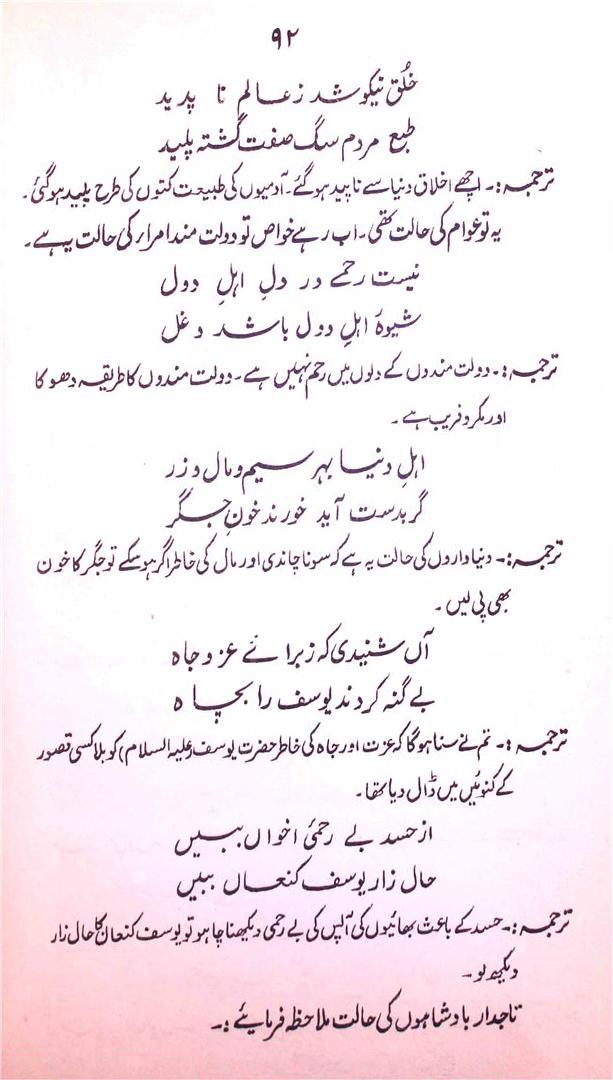 ۹۲
خُلق نیکو شد ز عالم نا پدید
طبع مردم سگ صفت گشتہ پلید
ترجمہ:۔ اچھے اخلاق دنیا سے ناپید ہو گئے۔ آدمیوں کی طبیعت کتوں کی طرح پلید ہو گئی۔
یہ تو عوام کی حالت تھی۔ اب رہے خواص تو دولت مند امراء کی حالت یہ ہے۔
نیست رحمے در دلِ اہلِ دول
شیوۂ اہلِ دول باشد دغل
ترجمہ:۔ دولت مندوں کے دلوں میں رحم نہیں ہے۔ دولت مندوں کا طریقہ دھوکا
اور مکر و فریب ہے۔
اہلِ دنیا بہر سیم و مال و زر
گر بدست آید خورند خونِ جگر
ترجمہ:۔ دنیاداروں کی حالت یہ ہے کہ سونا چاندی اور مال کی خاطر اگر ہو سکے تو جگر کا خون
بھی پی لیں۔
آں شنیدی کہ ز برائے عز و جاہ
بے گنہ کردند یوسف را بچاہ
ترجمہ:۔ تم نے سنا ہوگا کہ عزت اور جاہ کی خاطر حضرت یوسف (علیہ السلام) کو بلا کسی قصور
کے کنوئیں میں ڈال دیا تھا۔
از حسد بے رحمیٔ اخواں ببیں
حال زار یوسف کنعاں ببیں
ترجمہ:۔ حسد کے باعث بھائیوں کی آپس کی بے رحمی دیکھنا چاہو تو یوسف کنعان کا حال زار
دیکھ لو۔
تاجدار بادشاہوں کی حالت ملاحظہ فرمایئے:۔